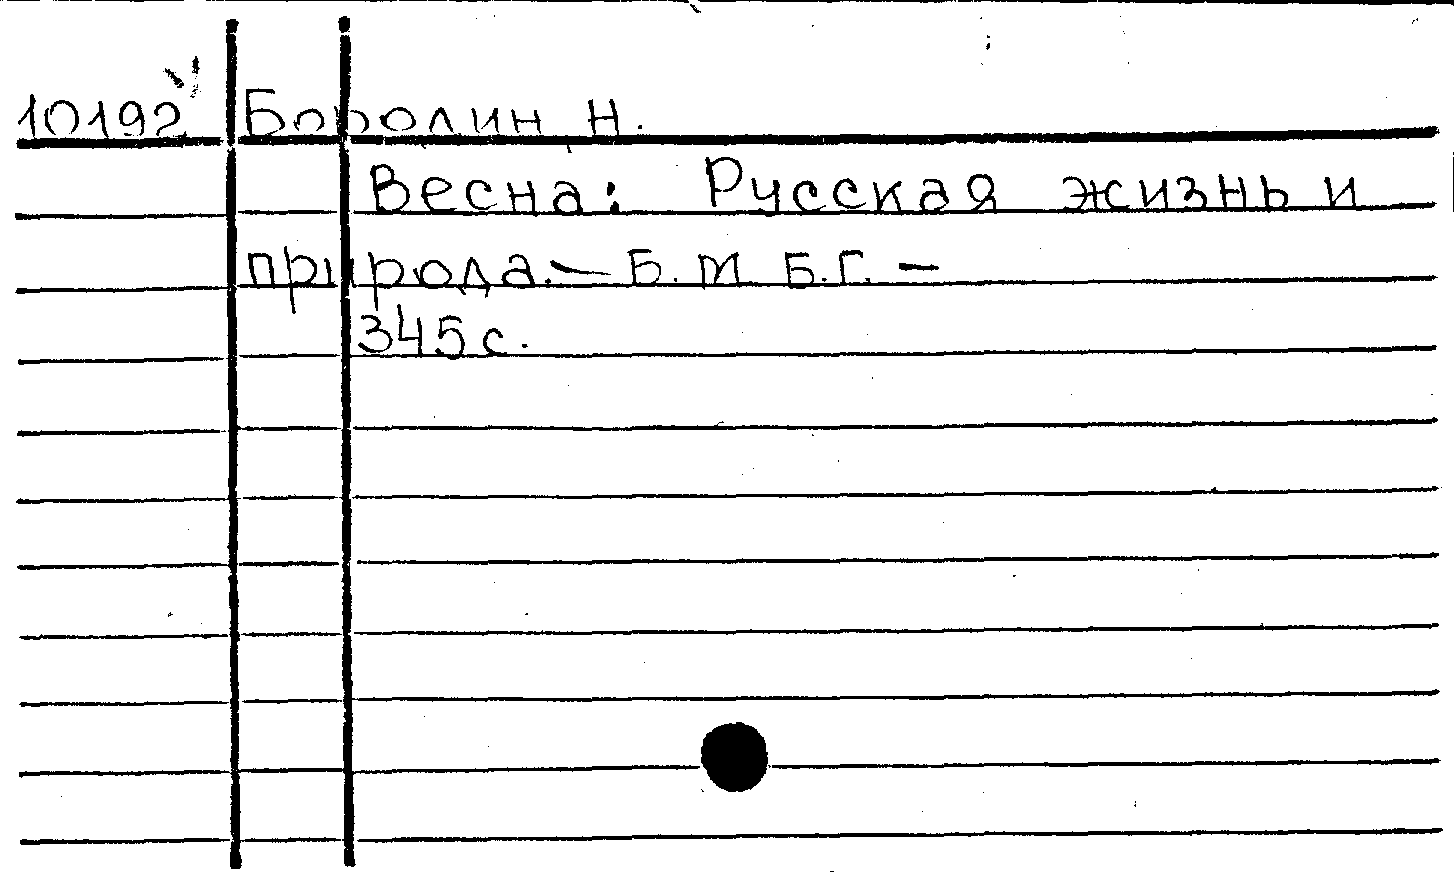 10192 Бородин Н.
Весна: Русская жизнь и
природа. — Б. М Б.Г. —
345 с.